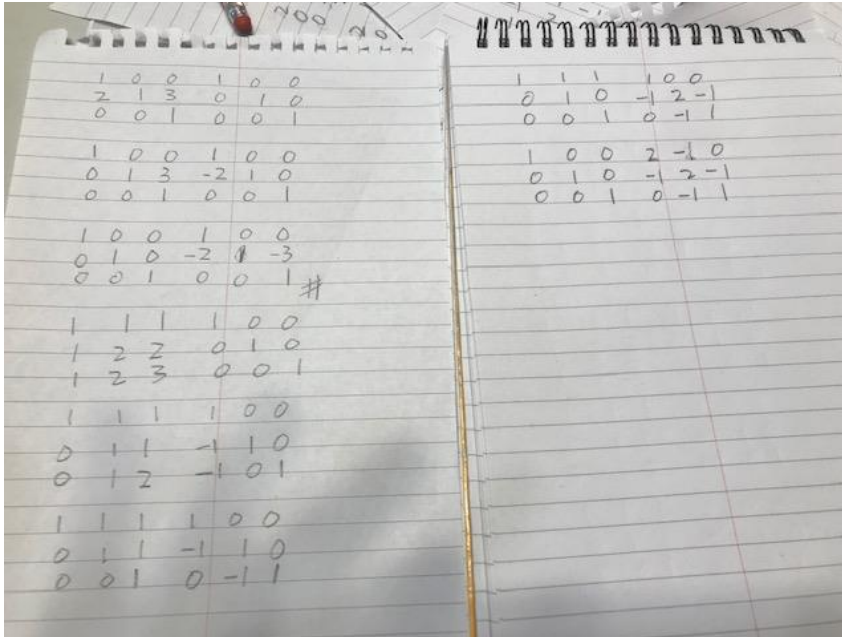 200
20
1 0 0 1 0 0
2 1 3 0 1 0
0 0 1 0 0 1
1 0 0 1 0 0
0 1 3 -2 1 0
0 0 1 0 0 1
1 0 0 1 0 0
0 1 0 -2 1 -3
0 0 1 0 0 1 #
1 1 1 1 0 0
1 2 2 0 1 0
1 2 3 0 0 1
1 1 1 1 0 0
0 1 1 -1 1 0
0 1 2 -1 0 1
1 1 1 1 0 0
0 1 1 -1 1 0
0 0 1 0 -1 1
1 1 1 1 0 0
0 1 0 -1 2 -1
0 0 1 0 -1 1
1 0 0 2 -1 0
0 1 0 -1 2 -1
0 0 1 0 -1 1